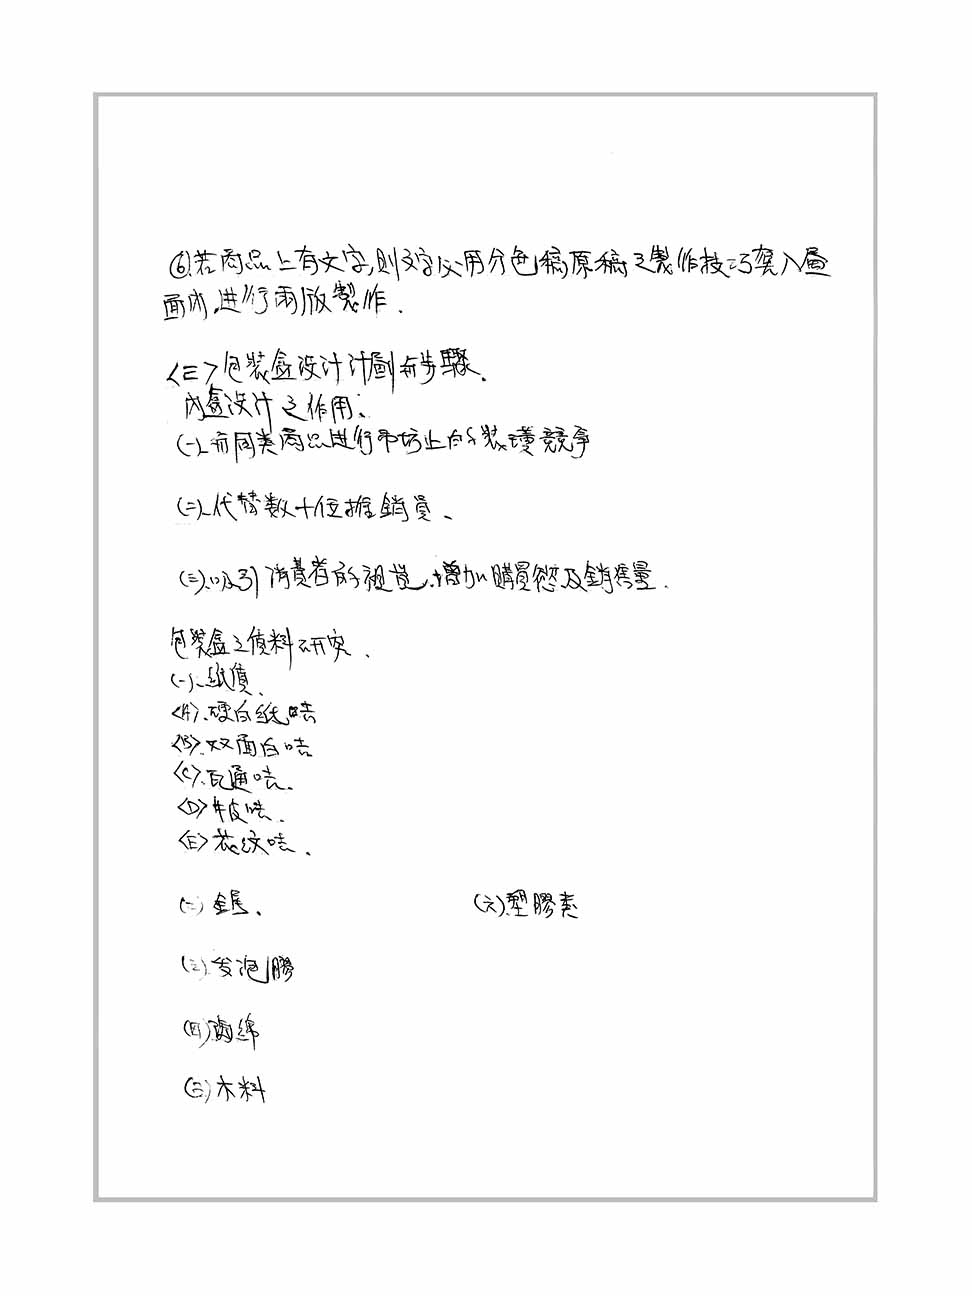 ⑥若商品上有文字,則文字必用分色稿原稿之製作技巧套入畫
面內.進行兩版製作.
<三>包裝盒設計計劃與步驟.
內盒設計之作用:
(一)、與同类商品進行市場上的裝璜競爭
(二)、代替数十位推銷員、
(三)、吸引消費者的視覚.增加購買慾及銷售量.
包裝盒之質料研究.
(一)、紙質.
<A>.硬白纸咭
<B>.双面白咭
<C>.瓦通咭.
<D>牛皮咭.
<E>花纹咭.
(二)金属. (六).塑膠素
(三).发泡膠
(四)海绵
(五)木料